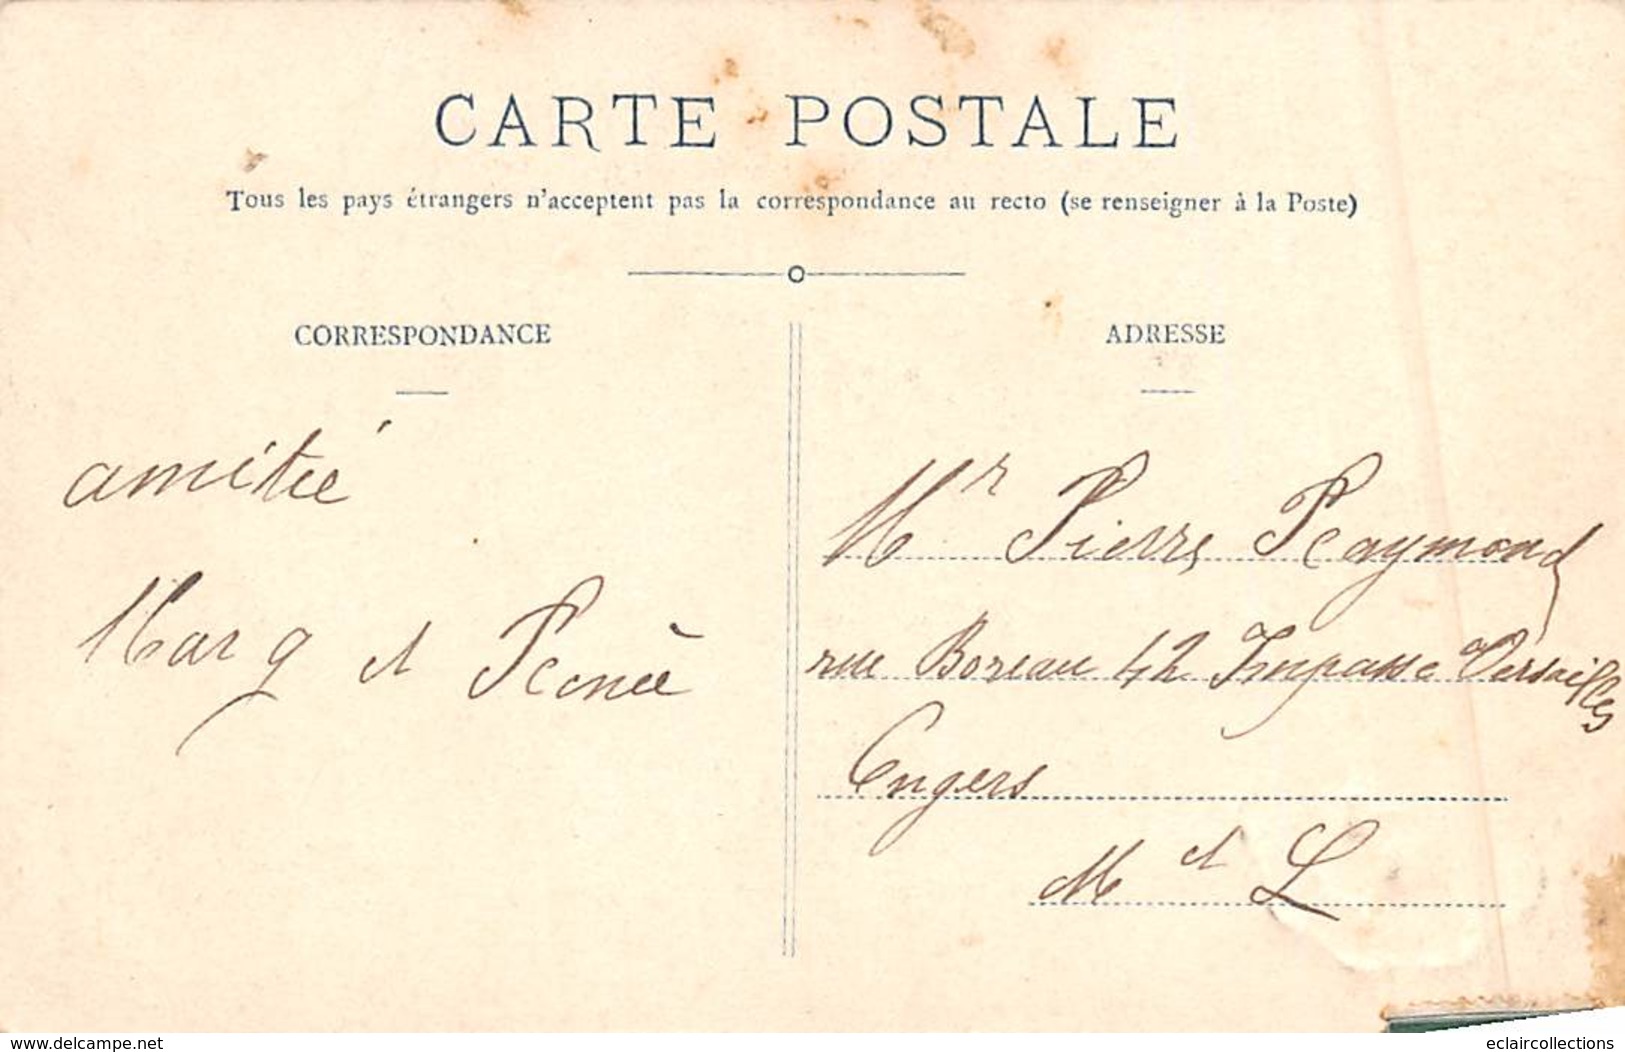 CARTE POSTALE
Tous les pays étrangers n'acceptent pas la correspondance au recto (se renseigner à la Poste)
CORRESPONDANCE
amitié
Marg et Renée
ADRESSE
Mr Pierre Raymond
rue Boreau 42 Impasse Versailles
Engers
M et L
www.delcampe.net
eclaircollections